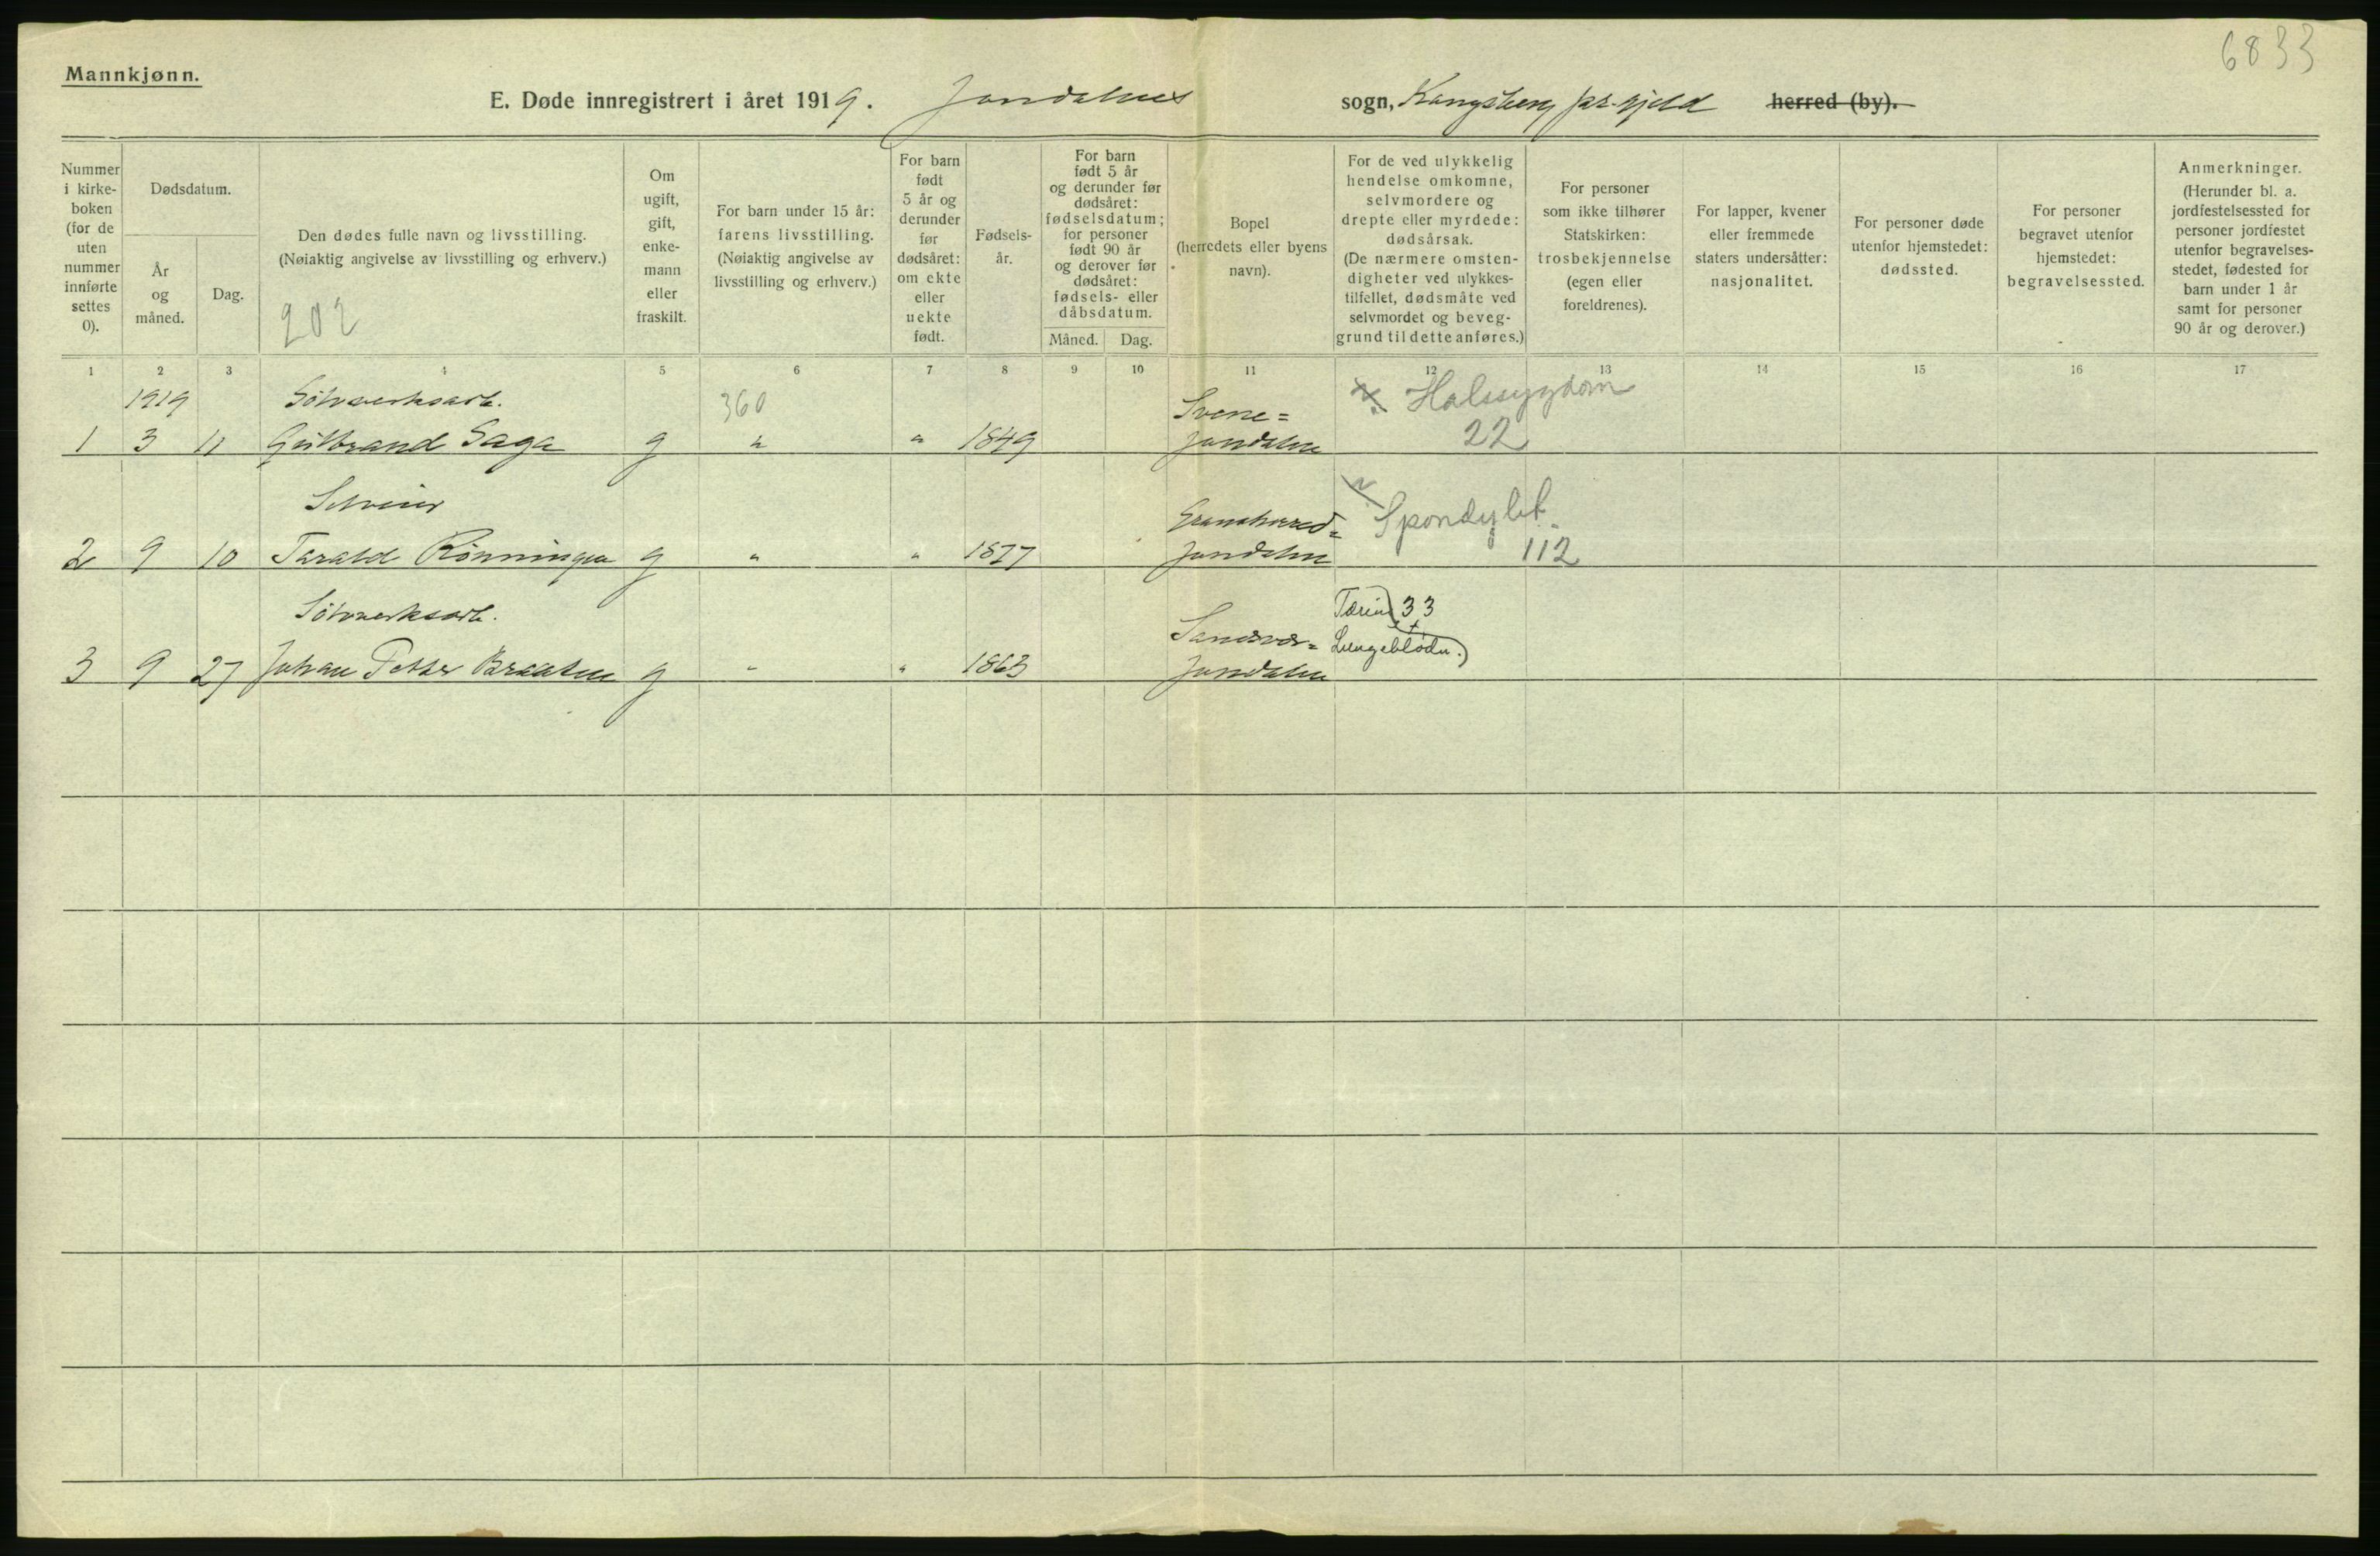 6833
Mannkjønn.
E. Døde innregistrert i året 1919. Jondalens sogn, Kongsberg pr.gjeld herred (by).
Nummer i kirke-boken (for de uten nummer innførte settes 0).
Dødsdatum.
År og måned.
Dag.
Den dødes fulle navn og livsstilling.
(Nøiaktig angivelse av livsstilling og erhverv.)
202
Om ugift, gift, enke-mann eller fraskilt.
For barn under 15 år: farens livsstilling.
(Nøiaktig angivelse av livsstilling og erhverv.)
For barn født 5 år og derunder før dødsåret: om ekte eller uekte født.
Fødsels-år.
For barn født 5 år og derunder før dødsåret: fødselsdatum; for personer født 90 år og derover før dødsåret: fødsels- eller dåbsdatum.
Måned.
Dag.
Bopel (herredets eller byens navn).
For de ved ulykkelig hendelse omkomne, selvmordere og drepte eller myrdede: dødsårsak.
(De nærmere omsten-digheter ved ulykkes-tilfellet, dødsmåte ved selvmordet og beveg-grund til dette anføres.)
For personer som ikke tilhører Statskirken: trosbekjennelse (egen eller foreldrenes).
For lapper, kvener eller fremmede staters undersåtter: nasjonalitet.
For personer døde utenfor hjemstedet: dødssted.
For personer begravet utenfor hjemstedet: begravelsessted.
Anmerkninger.
(Herunder bl. a. jordfestelsessted for personer jordfestet utenfor begravelses-stedet, fødested for barn under 1 år samt for personer 90 år og derover.)
1 2 3 4 5 6 7 8 9 10 11 12 13 14 15 16 17
1919 Sølvverksarb. 360 Svene= Halssygdom
1 3 11 Gulbrand Saga g " " 1849 Jondalen 22
Selveier Gransherred= Spondylit
2 9 10 Tarald Rönningen g " " 1877 Jondalen 112
Sølvverksarb. Tæring 33
Sandsvær= Lungeblødn.)
3 9 27 Johan Petter Braaten g " " 1863 Jondalen